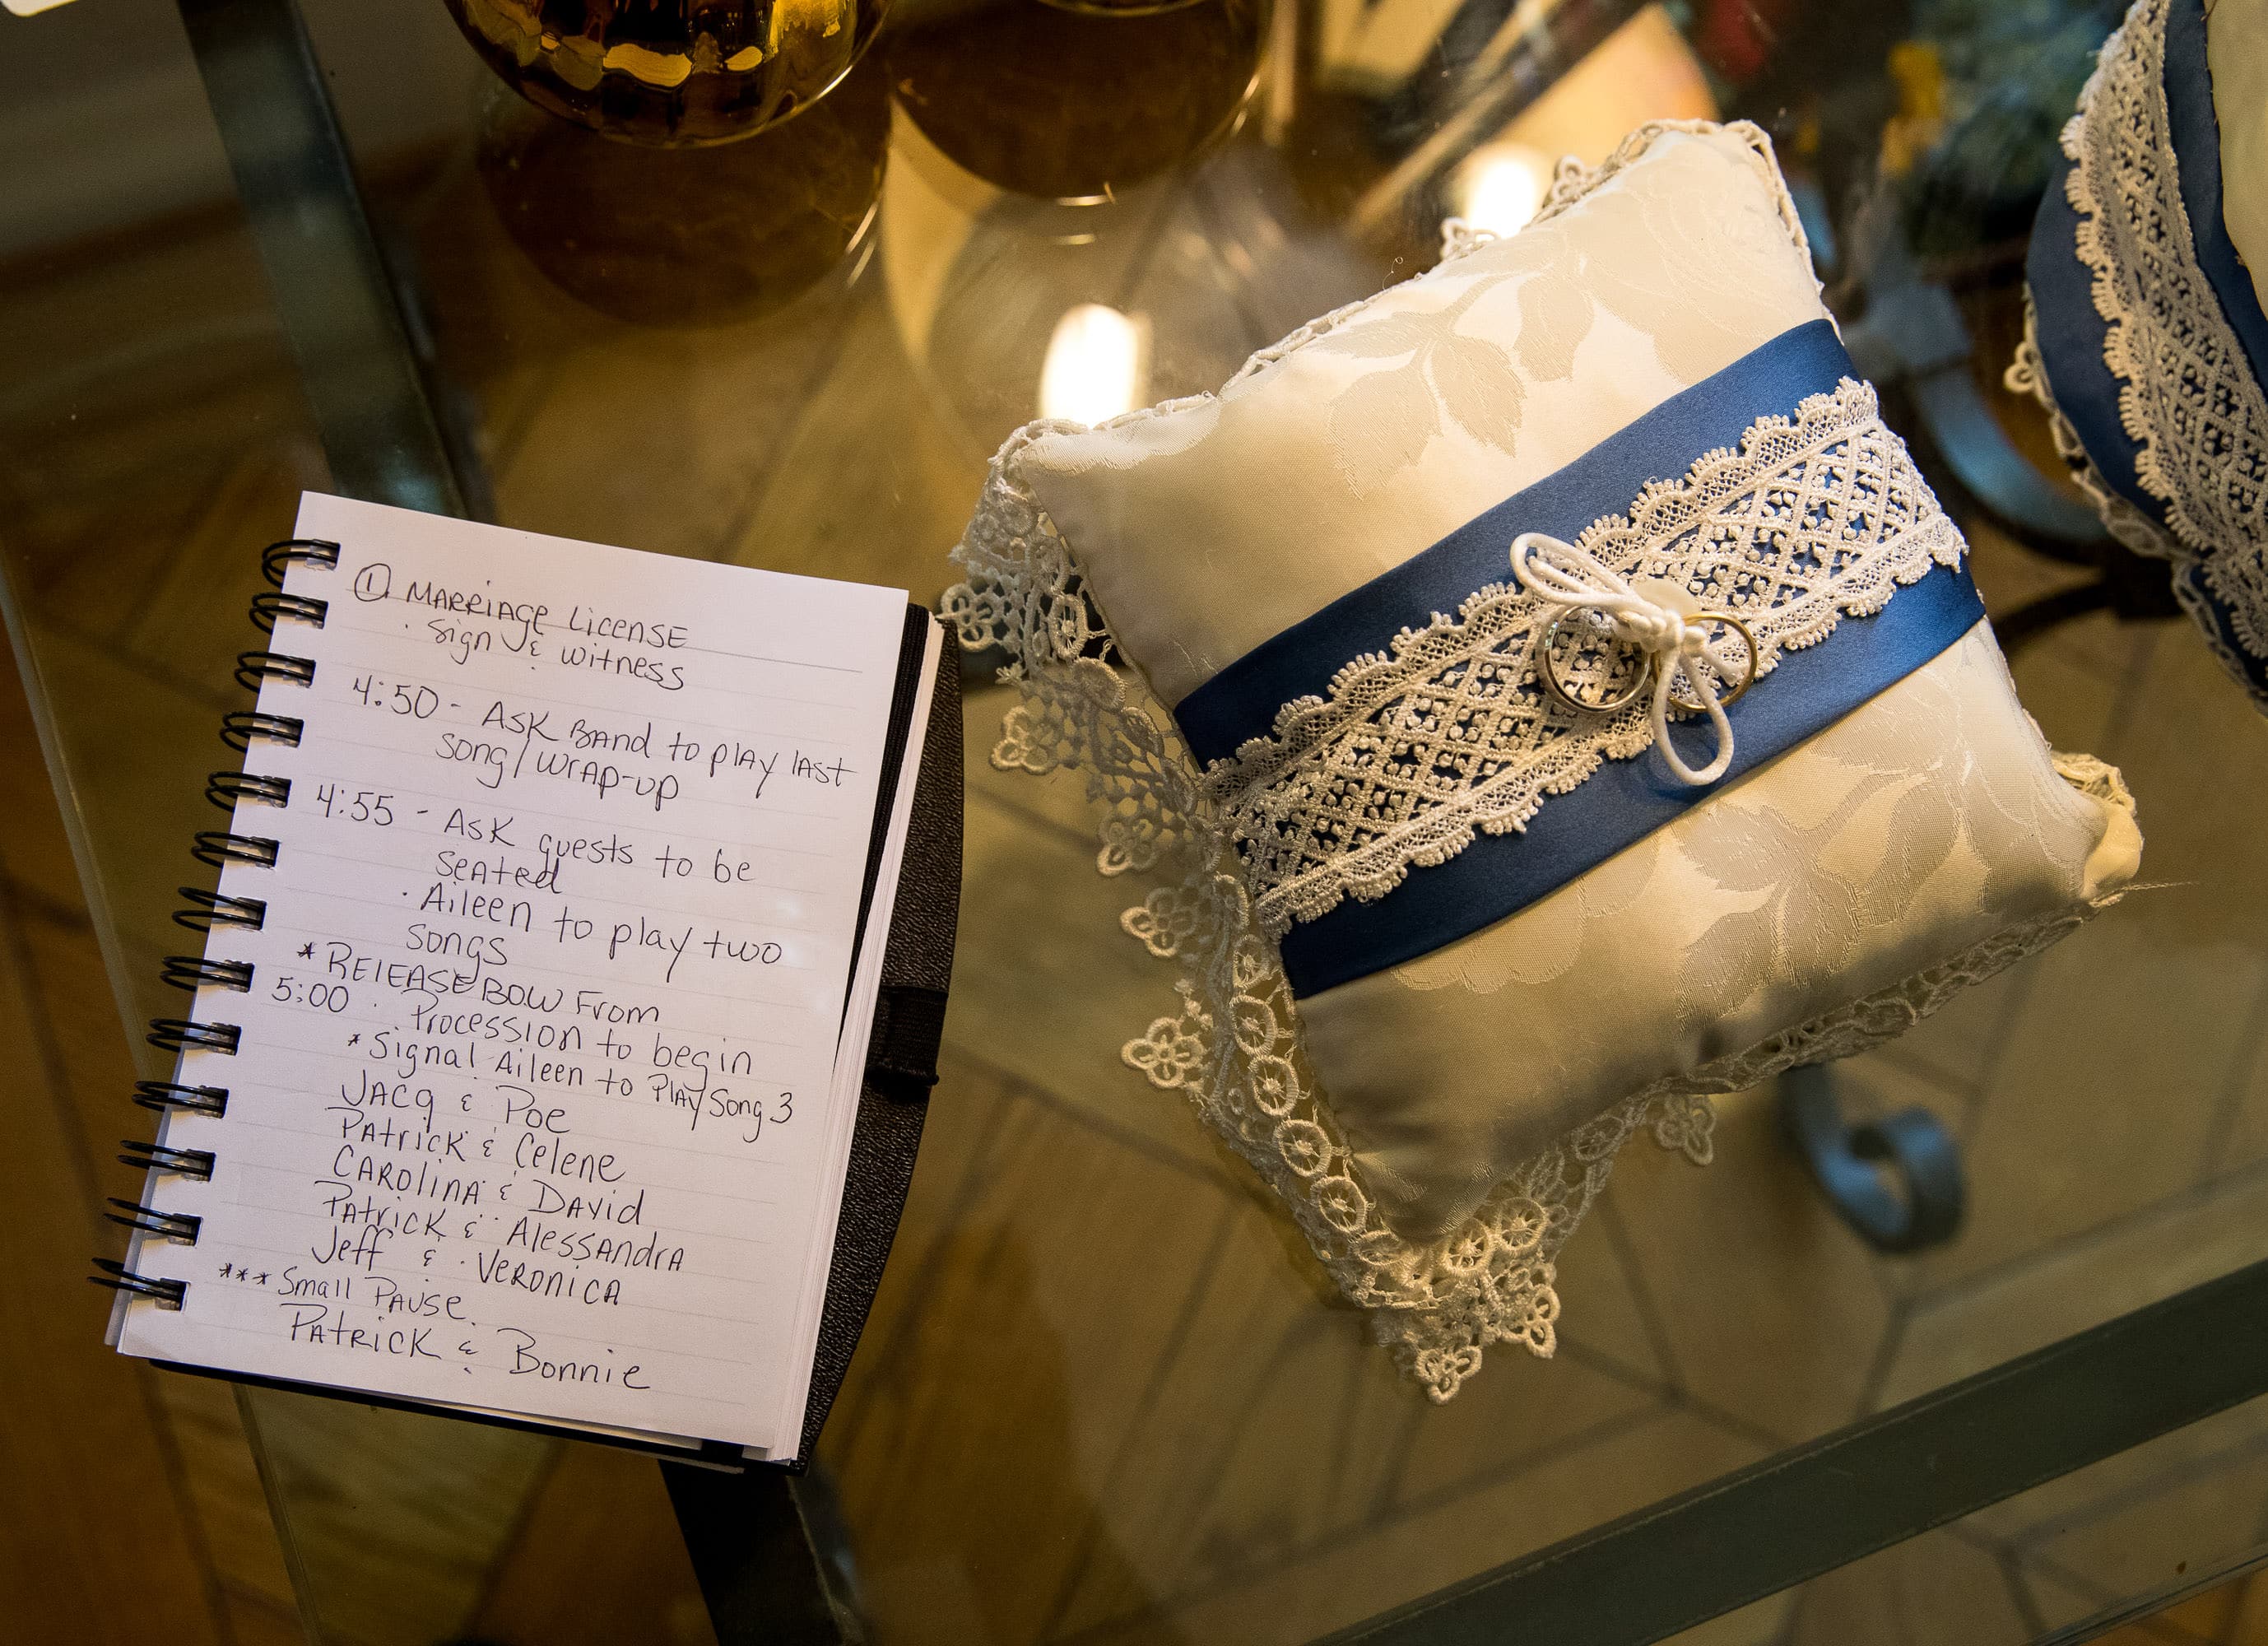 ① MARRIAGE LICENSE
· Sign & witness
4:50 - ASK BAND to play last
song/wrap-up
4:55 - ASK guests to be
seated
· Aileen to play two
songs
* RELEASE BOW From
5:00 · Procession to begin
* Signal Aileen to Play Song 3
JACQ & Poe
PATRICK & Celene
CAROLINA & DAVID
PATRICK & Alessandra
Jeff & VERONICA
*** Small PAUSE.
PATRICK & Bonnie